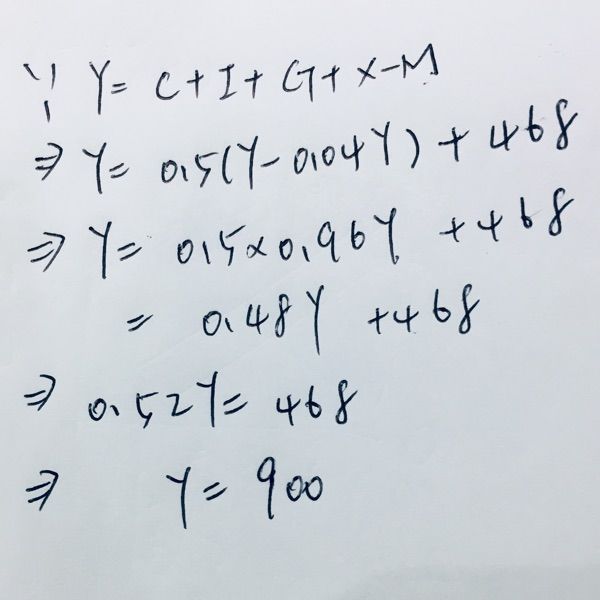 ∵ Y = C + I + G + X - M
⇒ Y = 0.5(Y - 0.04Y) + 468
⇒ Y = 0.5×0.96Y + 468
= 0.48Y + 468
⇒ 0.52Y = 468
⇒ Y = 900